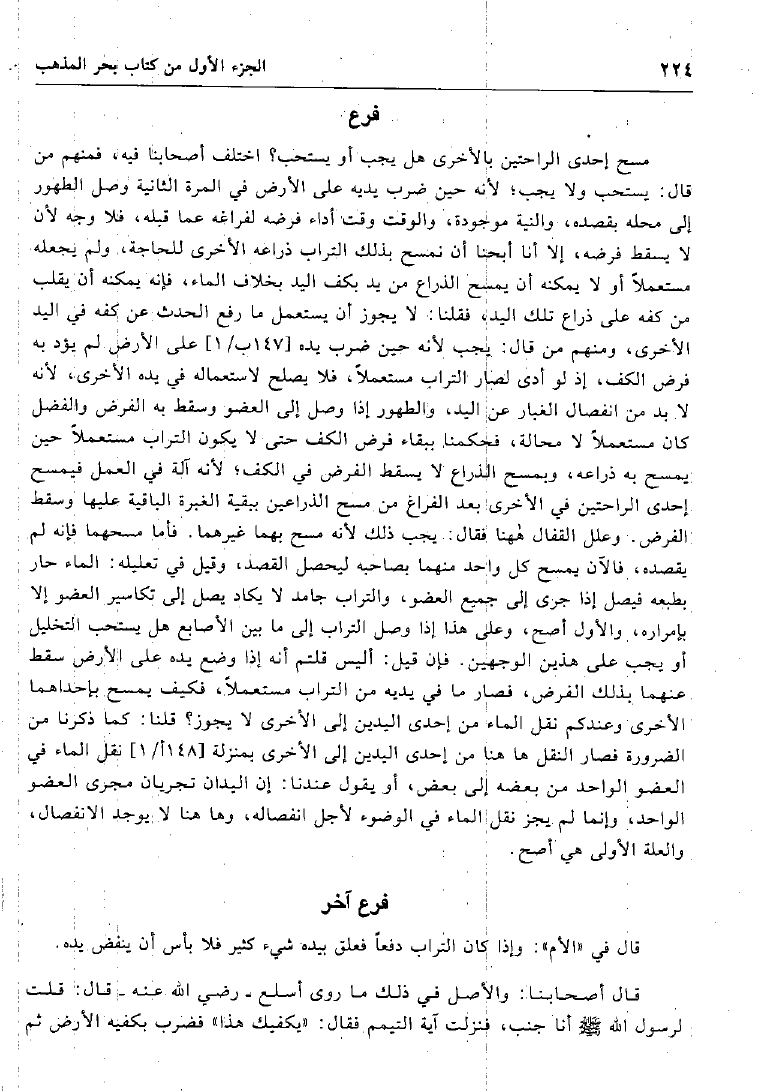 ٢٢٤
الجزء الأول من كتاب بحر المذهب
فرع
مسح إحدى الراحتين بالأخرى هل يجب أو يستحب؟ اختلف أصحابنا فيه، فمنهم من
قال: يستحب ولا يجب؛ لأنه حين ضرب يديه على الأرض في المرة الثانية وصل الطهور
إلى محله بقصده، والنية موجودة، والوقت وقت أداء فرضه لفراغه عما قبله، فلا وجه لأن
لا يسقط فرضه، إلا أنا أبحنا أن نمسح بذلك التراب ذراعه الأخرى للحاجة، ولم يجعله
مستعملاً أو لا يمكنه أن يمسح الذراع من يد بكف اليد بخلاف الماء، فإنه يمكنه أن يقلب
من كفه على ذراع تلك اليد، فقلنا: لا يجوز أن يستعمل ما رفع الحدث عن كفه في اليد
الأخرى، ومنهم من قال: يجب لأنه حين ضرب يده [١٤٧ب/١] على الأرض لم يؤد به
فرض الكف، إذ لو أدى لصار التراب مستعملاً، فلا يصلح لاستعماله في يده الأخرى، لأنه
لا بد من انفصال الغبار عن اليد، والطهور إذا وصل إلى العضو وسقط به الفرض والفضل
كان مستعملاً لا محالة، فحكمنا ببقاء فرض الكف حتى لا يكون التراب مستعملاً حين
يمسح به ذراعه، وبمسح الذراع لا يسقط الفرض في الكف؛ لأنه آلة في العمل فيمسح
إحدى الراحتين في الأخرى بعد الفراغ من مسح الذراعين ببقية الغبرة الباقية عليها وسقط
الفرض. وعلل القفال هٰهنا فقال: يجب ذلك لأنه مسح بهما غيرهما. فأما مسحهما فإنه لم
يقصده، فالآن يمسح كل واحد منهما بصاحبه ليحصل القصد، وقيل في تعليله: الماء حار
بطبعه فيصل إذا جرى إلى جميع العضو، والتراب جامد لا يكاد يصل إلى تكاسير العضو إلا
بإمراره، والأول أصح، وعلى هذا إذا وصل التراب إلى ما بين الأصابع هل يستحب التخليل
أو يجب على هذين الوجهين. فإن قيل: أليس قلتم أنه إذا وضع يده على الأرض سقط
عنهما بذلك الفرض، فصار ما في يديه من التراب مستعملاً، فكيف يمسح بإحداهما
الأخرى وعندكم نقل الماء من إحدى اليدين إلى الأخرى لا يجوز؟ قلنا: كما ذكرنا من
الضرورة فصار النقل ها هنا من إحدى اليدين إلى الأخرى بمنزلة [١٤٨أ/١] نقل الماء في
العضو الواحد من بعضه إلى بعض، أو يقول عندنا: إن اليدان تجريان مجرى العضو
الواحد، وإنما لم يجز نقل الماء في الوضوء لأجل انفصاله، وها هنا لا يوجد الانفصال،
والعلة الأولى هي أصح.
فرع آخر
قال في «الأم»: وإذا كان التراب دفعاً فعلق بيده شيء كثير فلا بأس أن ينفض يده.
قال أصحابنا: والأصل في ذلك ما روى أسلع ـ رضي الله عنه ـ قال: قلت
لرسول الله ﷺ أنا جنب، فنزلت آية التيمم فقال: «يكفيك هذا» فضرب بكفيه الأرض ثم